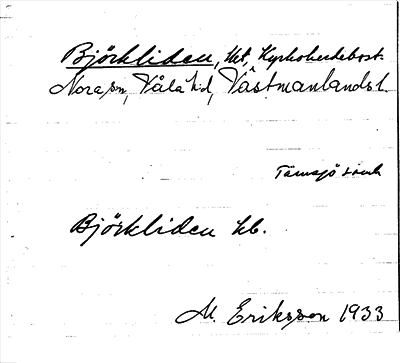 Björkliden, lht, Kyrkoherdebost.
Nora sn, Våla hd, Västmanlands l.
Tärnsjö samh
Björkliden kb.
M. Eriksson 1933